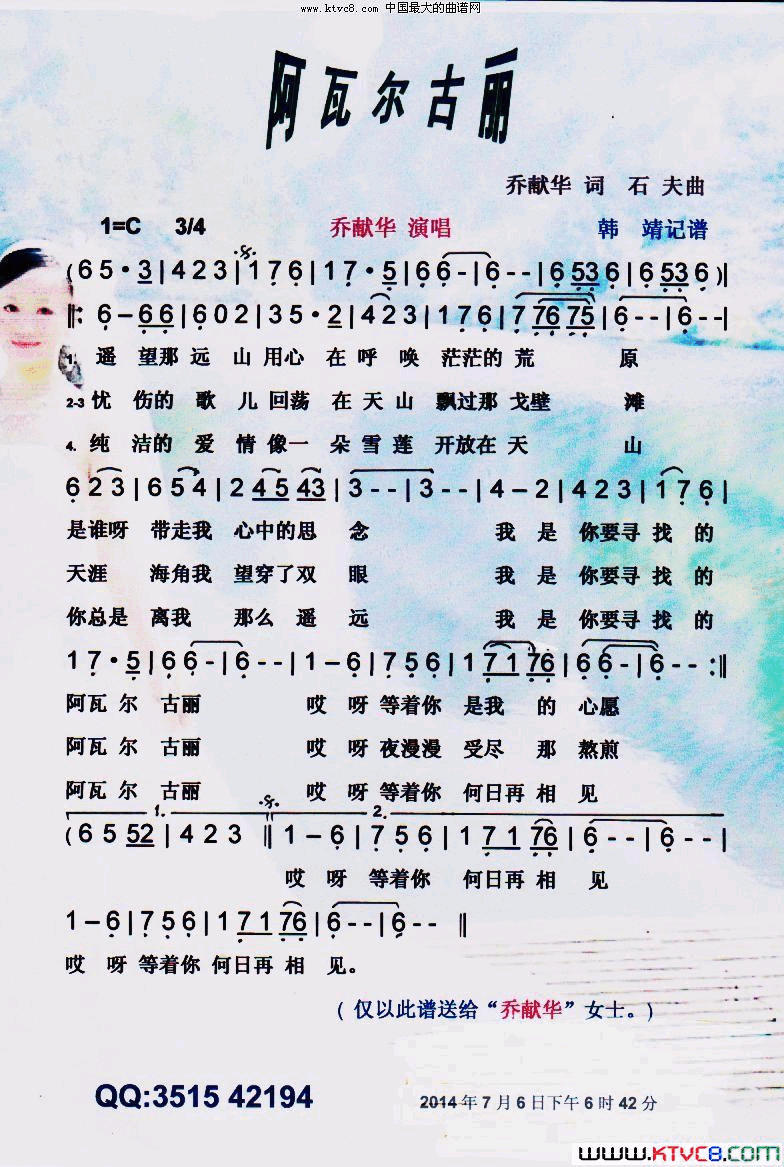 www.ktvc8.com 中国最大的曲谱网
阿瓦尔古丽
乔献华 词 石 夫曲
1=C 3/4 乔献华 演唱 韩 靖记谱
( 6 5 · 3 | 4 2 3 | 1 7 6 | 1 7 · 5 | 6 6 - | 6 - - | 6 53 6 | 6 53 6 ) ||
||: 6 - 6 6 | 6 0 2 | 3 5 · 2 | 4 2 3 | 1 7 6 | 7 76 75 | 6 - - | 6 - - |
1. 遥 望那 远 山 用心 在 呼 唤 茫茫的 荒 原
2-3 忧 伤的 歌 儿 回荡 在 天 山 飘过那 戈壁 滩
4. 纯 洁的 爱 情 像一 朵 雪 莲 开放在 天 山
6 2 3 | 6 5 4 | 2 4 5 43 | 3 - - | 3 - - | 4 - 2 | 4 2 3 | 1 7 6 |
是谁呀 带走我 心中的思 念 我 是 你要寻 找 的
天涯 海角我 望穿了双 眼 我 是 你要寻 找 的
你总是 离我 那么 遥 远 我 是 你要寻 找 的
1 7 · 5 | 6 6 - | 6 - - | 1 - 6 | 7 5 6 | 1 7 1 76 | 6 6 - | 6 - - :||
阿瓦 尔 古丽 哎 呀 等着你 是我 的 心愿
阿瓦 尔 古丽 哎 呀 夜漫漫 受尽 那 熬煎
阿瓦 尔 古丽 哎 呀 等着你 何日再 相 见
1. 2.
( 6 5 52 | 4 2 3 || 1 - 6 | 7 5 6 | 1 7 1 76 | 6 - - | 6 - - |
哎 呀 等着你 何日再 相 见
1 - 6 | 7 5 6 | 1 7 1 76 | 6 - - | 6 - - ||
哎 呀 等着你 何日再 相 见。
( 仅以此谱送给“乔献华”女士。)
QQ:3515 42194 2014 年 7 月 6 日下午 6 时 42 分
www.KTVC8.com